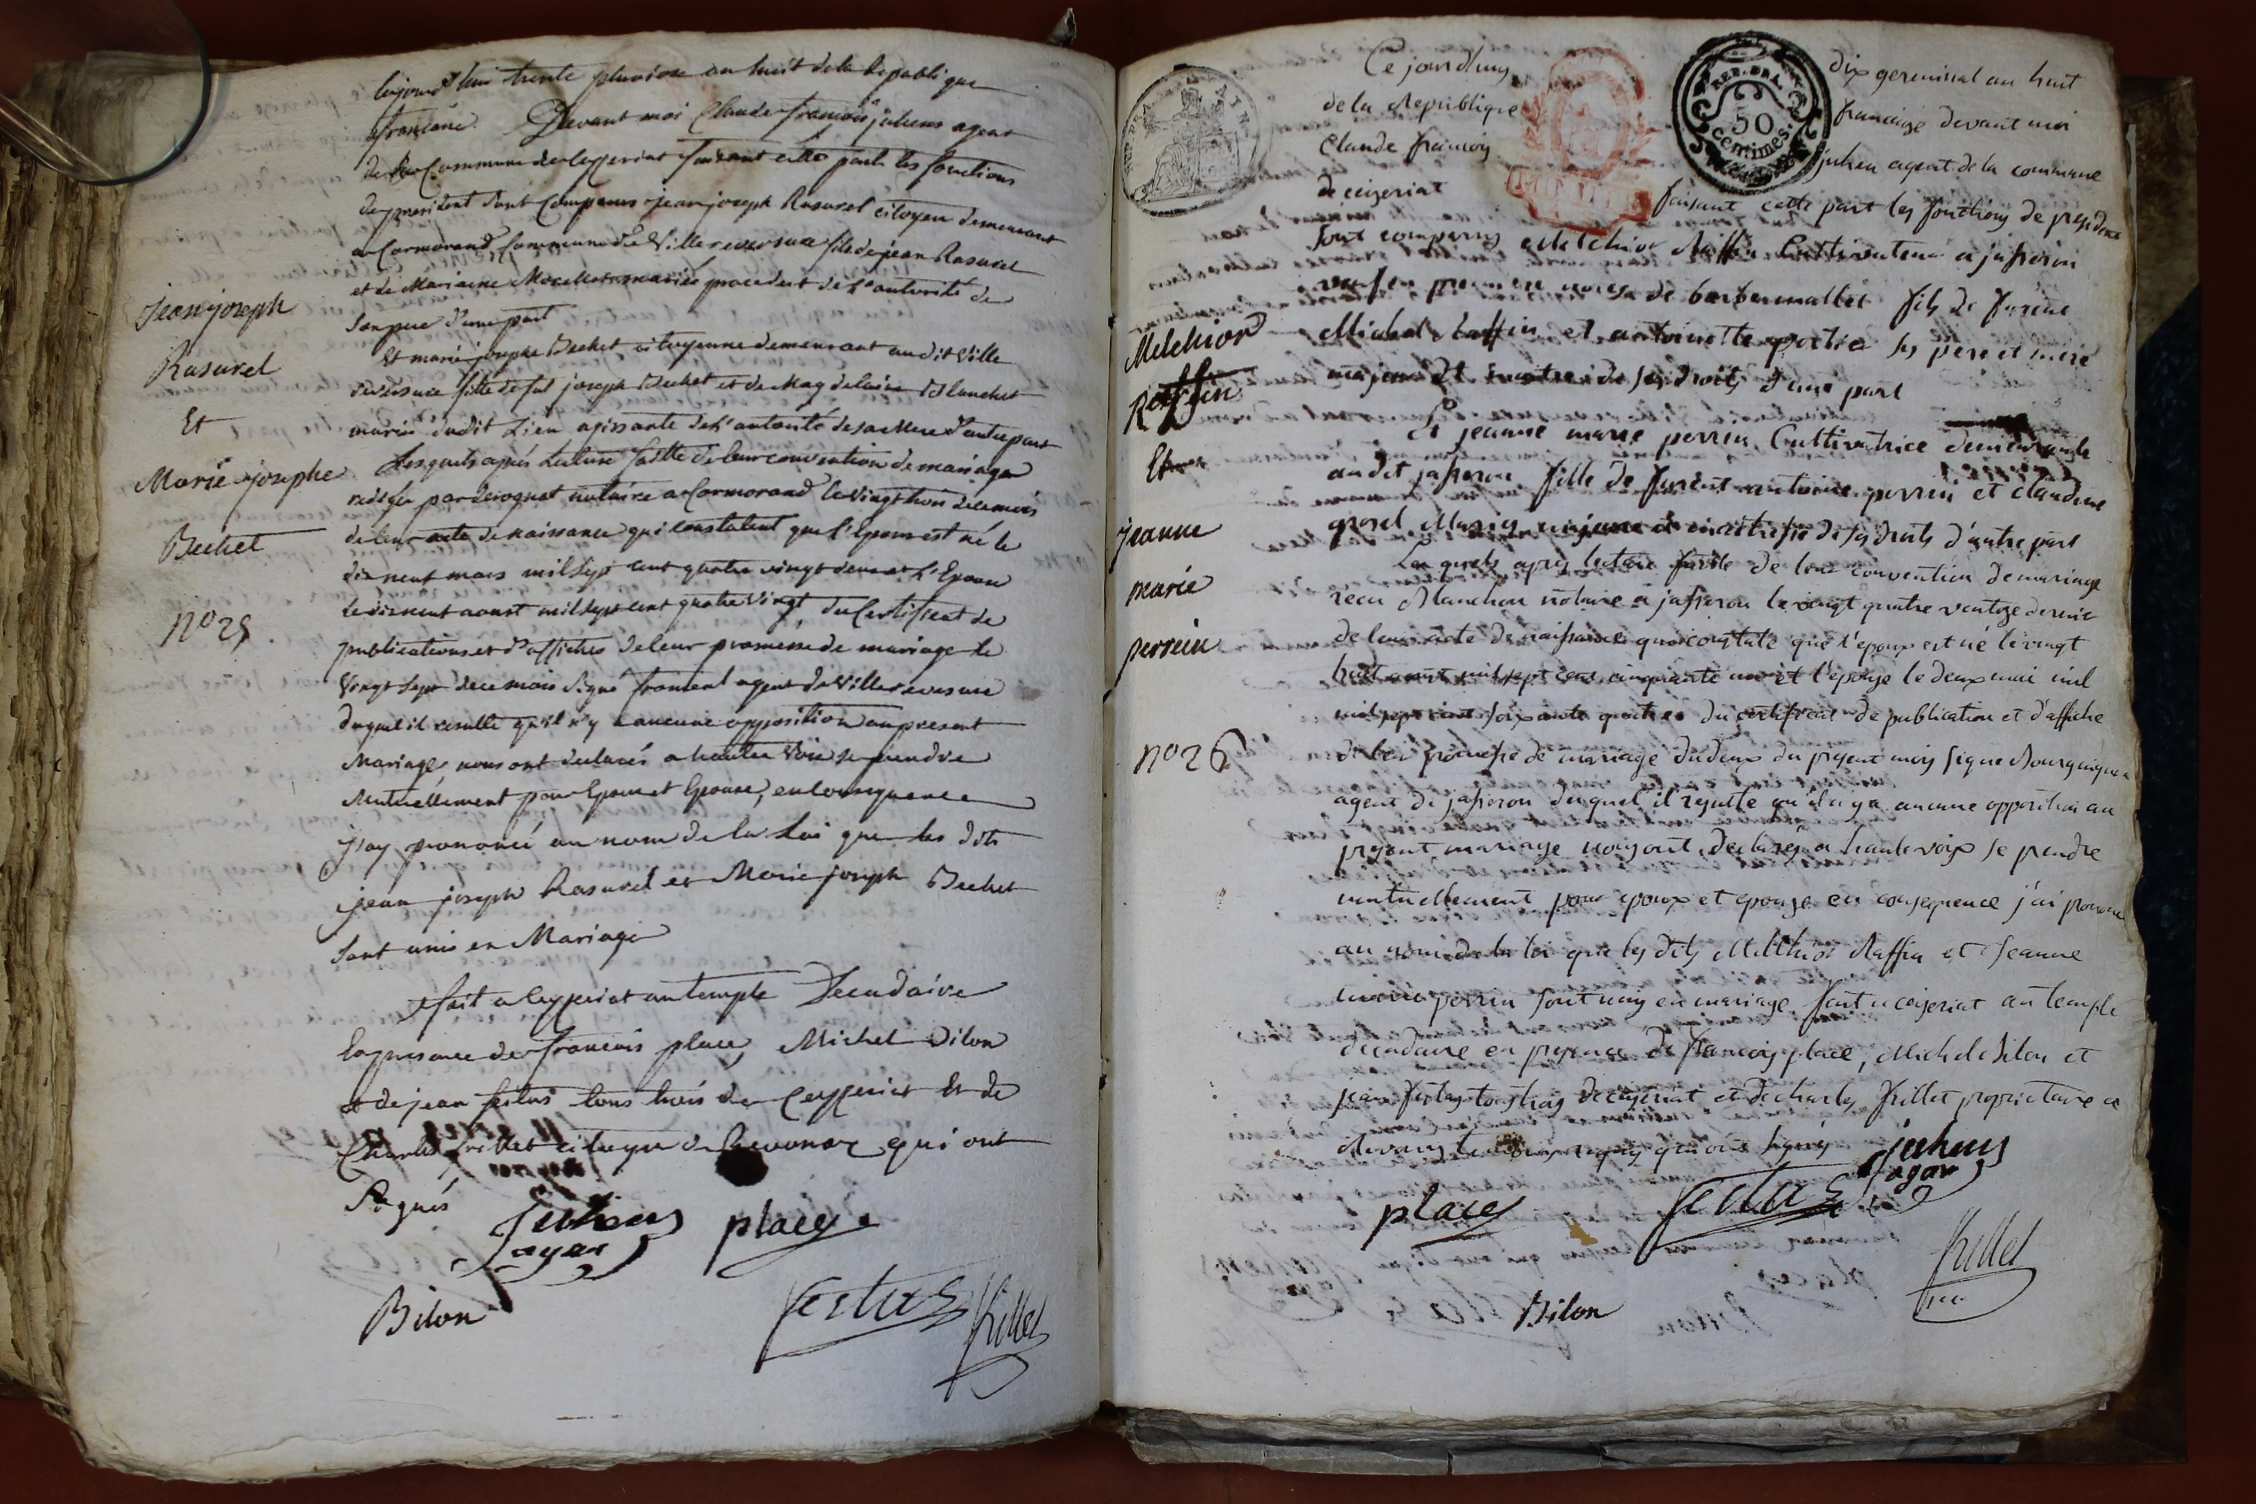 Cejourd'hui trente pluviose an huit de la Republique
francaise. Devant moi Claude françois juliens agent
de la Commune de Ceyzeriat faisant cette partie les fonctions
de president sont Comparus jean joseph Rasurel citoyen demeurant
a Cormorand Commune de Villereversure fils de jean Rasurel
et de Marianne mariés procedent de l'autorité de
son pere d'une part
Et marie josephe Bechet citoyenne demeurant au dit Ville
reversure fille de fut joseph Bechet et de Magdelaine Blanchet
mariés dudit Lieu agissante de l'autorité de sa Mere d'autre part
Lesquels après Lecture faitte de leur convention de mariage
redigée par notaire a Cormorand le vingt huit de ce mois
de leur acte de naissance qui constatent que l'Epoux est né le
dix neuf mars mil sept cent quatre vingt deux et l'Epouse
le dix neuf aoust mil sept cent quatre Vingt du Certificat de
publications et d'affiches de leur promesse de mariage le
Vingt Sept de ce mois signé froment agent de Villereversure
duquel il resulte qu'il n'y a aucune opposition au present
Mariage, nous ont declarés a haute Voix se prendre
Mutuellement pour Epoux et Epouse, en consequence
j'ay prononcé au nom de la Loi que les dits
jean joseph Rasurel et Marie joseph Bechet
sont unis en Mariage
fait a Ceyzeriat au temple Decadaire
En presence de francois place, Michel Bilon
et de jean festus tous trois de Ceyzeriat Et de
Charles frillet citoyen de Revonaz qui ont
Signés
Juliens
agent
place
Bilon
festus
frillet
Jean joseph
Rasurel
Et
Marie josephe
Bechet
No 25.
Ce jourd'huy dix germinal an huit
de la Republique francaise devant moi
Claude francois julien agent de la commune
de ceizeriat faisant cette part les fonctions de president
sont comparus Melchior Raffin Cultivateur a jasseron
veuf en premiere noces de barbe mallet fils de furent
Michel Raffin et antoinette portier ses pere et mere
majeur et maitre de ses droits d'une part
Et jeanne marie perrin Cultivatrice demeurante
audit jasseron fille de furent antoine perrin et claudine
grosel Mariés majeure et maitresse de ses droits d'autre part
Lesquels apres lecture faitte de leur convention de mariage
recu Manchon notaire a jasseron le vingt quatre ventose dernier
de leur acte de naissance qui constate que l'epoux est né le vingt
huit aout mil sept cent cinquante neuf et l'epouse le deux mai mil
mil sept cent soixante quatre du certificat de publication et d'affiche
de leur promesse de mariage du deux du present mois signe Bourguignon
agent de jasseron duquel il resulte qu'il n'y a aucune opposition au
present mariage nous ont declarés a haute voix se prendre
mutuellement pour epoux et epouse en consequence j'ai prononcé
au nom de la loi que les dits Melchior Raffin et Jeanne
marie perrin sont unis en mariage fait a ceizeriat au temple
decadaire en presence de francois place, Michel bilon et
jean festus tous trois de ceizeriat et de charles frillet proprietaire a
Revonas temoins requis qui ont signés
juliens
agent
place
festus
frillet
Bilon
Melchior
Raffin
Et
jeanne
marie
perrin
No 26
REP. FRA.
50
centimes